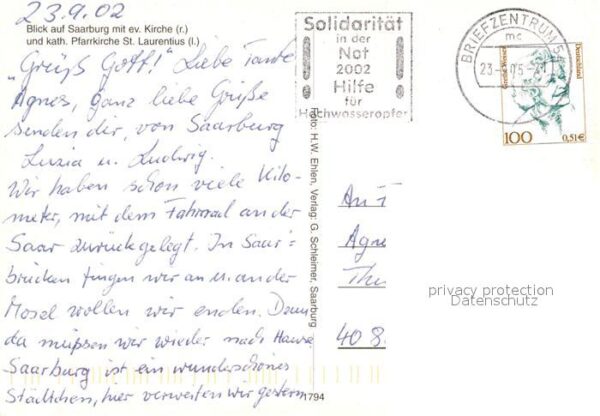 23.9.02
Blick auf Saarburg mit ev. Kirche (r.)
und kath. Pfarrkirche St. Laurentius (l.)
"Grüß Gott"! Liebe Tante
Agnes, ganz liebe Grüße
senden dir, von Saarburg
Luzia u. Ludwig.
Wir haben schon viele Kilo-
meter, mit dem Fahrrad an der
Saar zurückgelegt. In Saar-
brücken fingen wir an u. an der
Mosel wollen wir enden. Dann
da müssen wir wieder nach Hause
Saarburg ist ein wunderschönes
Städtchen, hier verweilten wir gestern
Foto: H.W. Ehlen, Verlag: G. Schleimer, Saarburg
1794
Solidarität
in der
Not
2002
Hilfe
für
Hochwasseropfer
BRIEFZENTRUM
mc
23
Deutschland
100
0,51€
An
Agne
40 8
privacy protection
Datenschutz